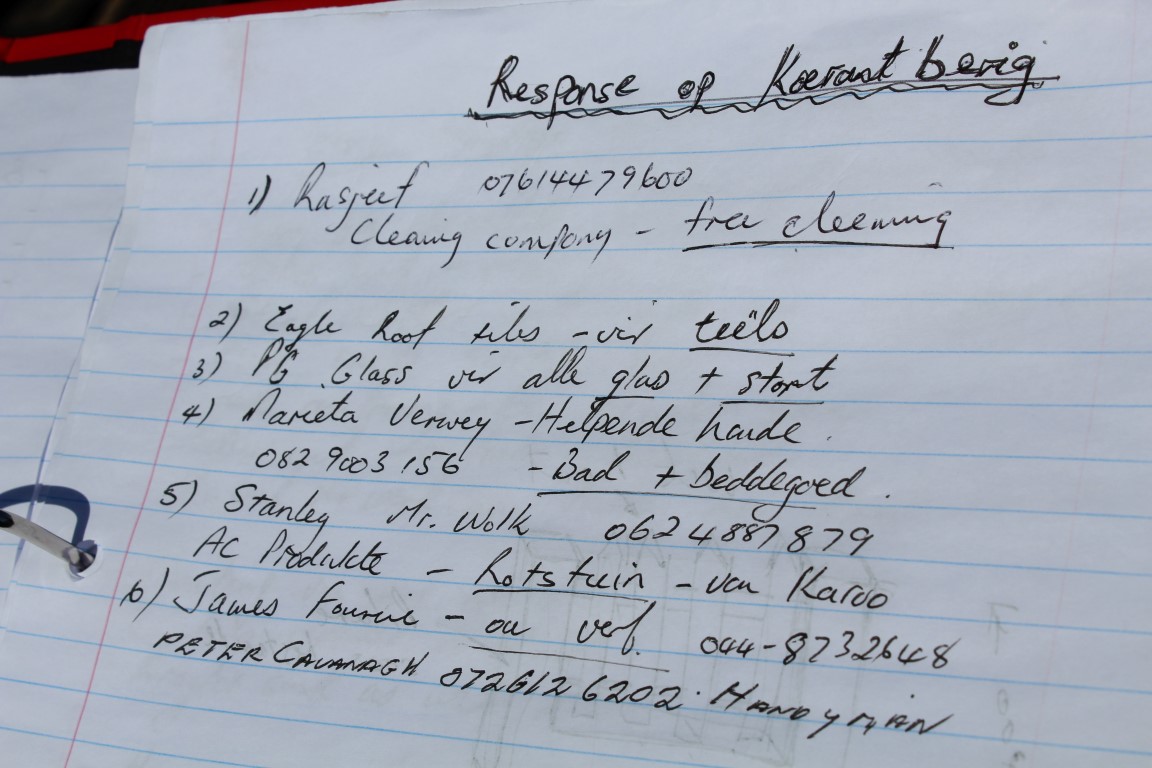 Response op Koerant berig
1) Rasjeef 07614479600
Cleaing company - free cleening
2) Eagle Roof tiles - vir teëls
3) PG Glass vir alle glas + stort
4) Marieta Verwey - Helpende hande.
082 9003 156 - Bad + beddegoed.
5) Stanley Mr. Wolk 0624887879
AC Produkte - Rotstuin - van Karoo
6) James Fourie - ou verf. 044-8732648
PETER CAVANAGH 072 612 6202. HANDYMAN